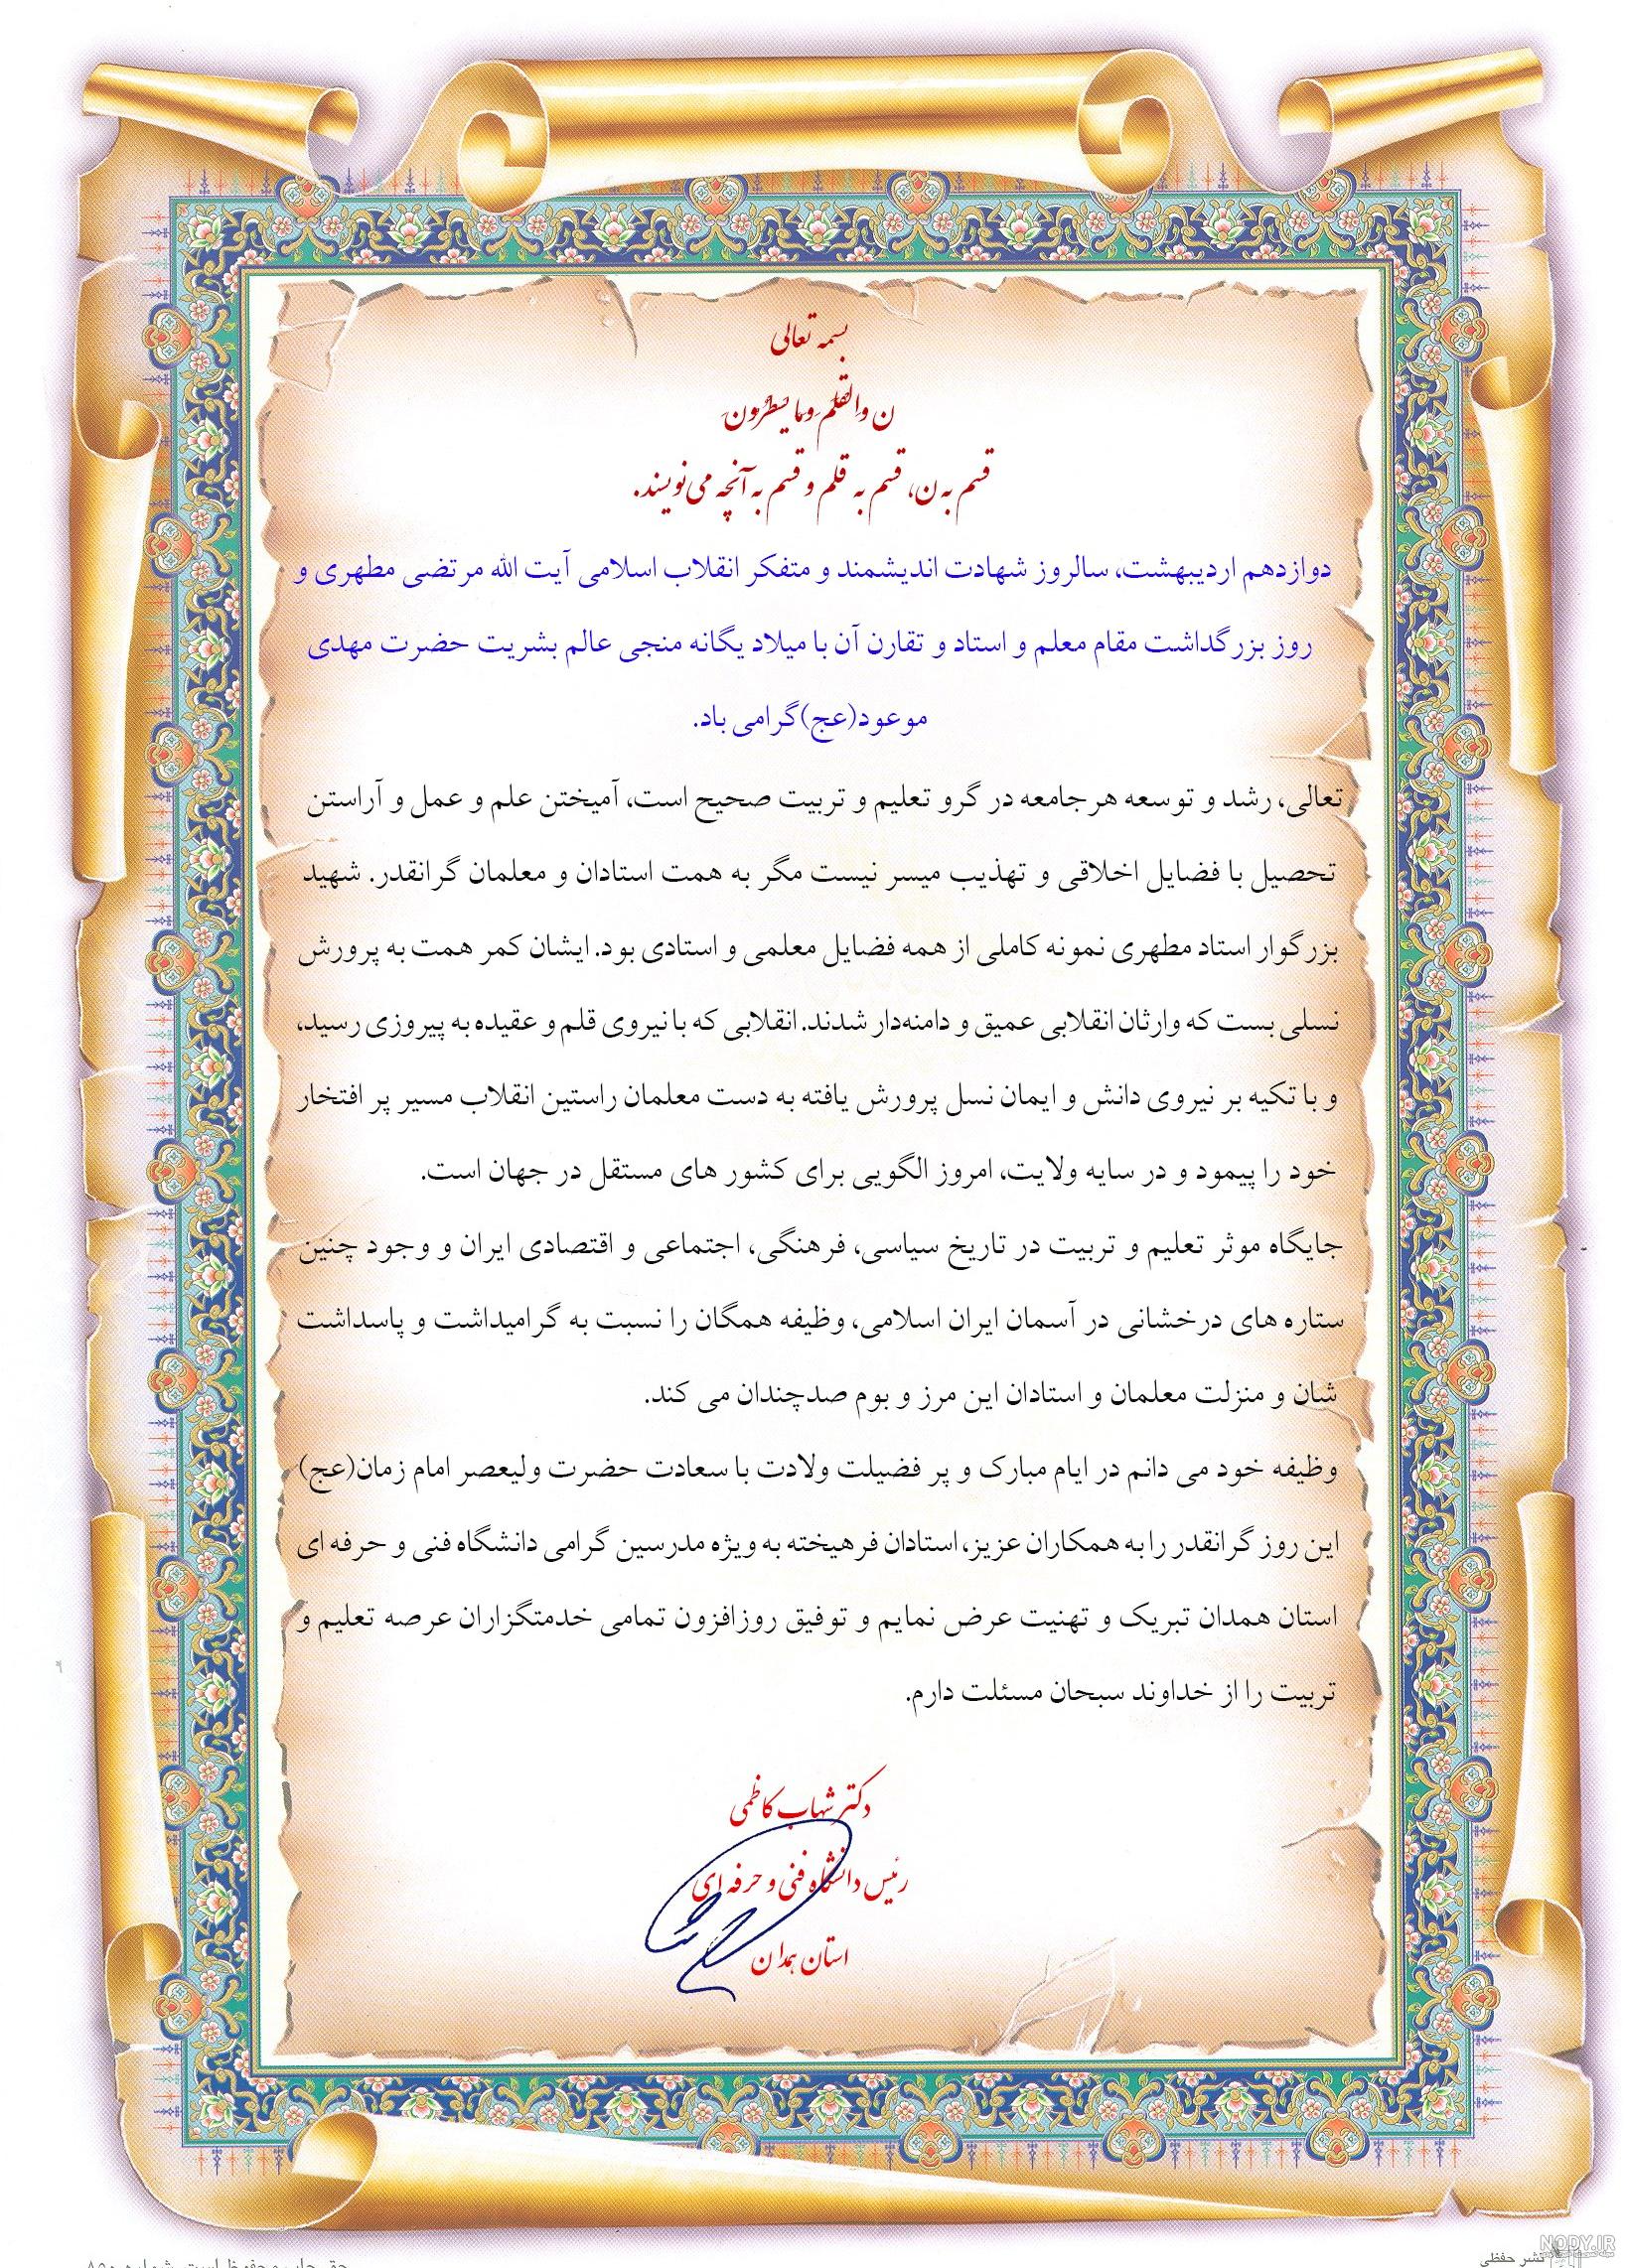 بسمه تعالی
ن والقلم وما یسطرون
قسم به ن، قسم به قلم و قسم به آنچه می‌نویسند.
دوازدهم اردیبهشت، سالروز شهادت اندیشمند و متفکر انقلاب اسلامی آیت الله مرتضی مطهری و
روز بزرگداشت مقام معلم و استاد و تقارن آن با میلاد یگانه منجی عالم بشریت حضرت مهدی
موعود(عج)گرامی باد.
تعالی، رشد و توسعه هر جامعه در گرو تعلیم و تربیت صحیح است، آمیختن علم و عمل و آراستن
تحصیل با فضایل اخلاقی و تهذیب میسر نیست مگر به همت استادان و معلمان گرانقدر. شهید
بزرگوار استاد مطهری نمونه کاملی از همه فضایل معلمی و استادی بود. ایشان کمر همت به پرورش
نسلی بست که وارثان انقلابی عمیق و دامنه‌دار شدند. انقلابی که با نیروی قلم و عقیده به پیروزی رسید،
و با تکیه بر نیروی دانش و ایمان نسل پرورش یافته به دست معلمان راستین انقلاب مسیر پر افتخار
خود را پیمود و در سایه ولایت، امروز الگویی برای کشور های مستقل در جهان است.
جایگاه موثر تعلیم و تربیت در تاریخ سیاسی، فرهنگی، اجتماعی و اقتصادی ایران و وجود چنین
ستاره های درخشانی در آسمان ایران اسلامی، وظیفه همگان را نسبت به گرامیداشت و پاسداشت
شان و منزلت معلمان و استادان این مرز و بوم صدچندان می کند.
وظیفه خود می دانم در ایام مبارک و پر فضیلت ولادت با سعادت حضرت ولیعصر امام زمان(عج)
این روز گرانقدر را به همکاران عزیز، استادان فرهیخته به ویژه مدرسین گرامی دانشگاه فنی و حرفه ای
استان همدان تبریک و تهنیت عرض نمایم و توفیق روزافزون تمامی خدمتگزاران عرصه تعلیم و
تربیت را از خداوند سبحان مسئلت دارم.
دکتر شهاب کاظمی
رئیس دانشگاه فنی و حرفه ای
استان همدان
نشر حفظی
NODY.IR